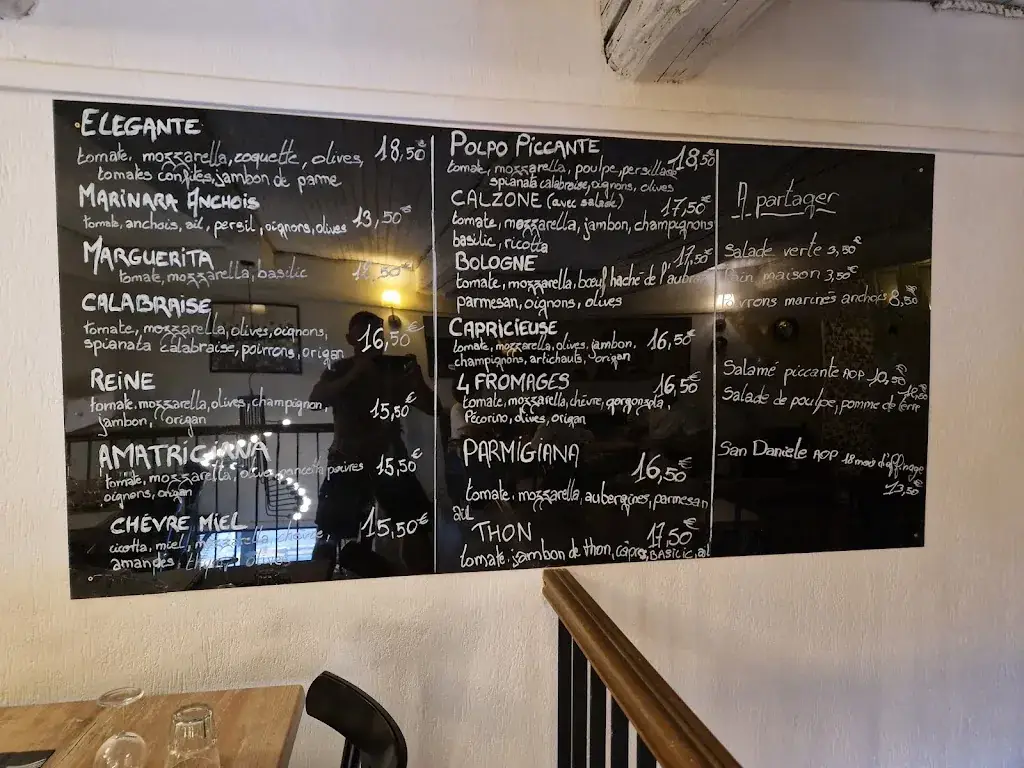 ELEGANTE
tomate, mozzarella, coquette, olives, 18,50€
tomates confites, jambon de parme
MARINARA ANCHOIS
tomate, anchois, ail, persil, oignons, olives 13,50€
MARGUERITA
tomate, mozzarella, basilic
CALABRAISE
tomate, mozzarella, olives, oignons,
spianata calabraise, poivrons, origan 16,50€
REINE
tomate, mozzarella, olives, champignon,
jambon, origan 15,50€
AMATRICIANA
tomate, mozzarella, olives, pancetta poivres 15,50€
oignons, origan
CHÈVRE MIEL 15,50€
ricotta, miel, chèvre
amandes,
POLPO PICCANTE 18,50
tomate, mozzarella, poulpe, persillade
spianata calabraise, oignons, olives
CALZONE (avec salade) 17,50€
tomate, mozzarella, jambon, champignons
basilic, ricotta
BOLOGNE 17,50€
tomate, mozzarella, bœuf haché de l'aubrac
parmesan, oignons, olives
CAPRICIEUSE
tomate, mozzarella, olives, jambon, 16,50€
champignons, artichauts, origan
4 FROMAGES 16,50€
tomate, mozzarella, chèvre, gorgonzola,
Pécorino, olives, origan
PARMIGIANA 16,50€
tomate, mozzarella, aubergines, parmesan
ail
THON 17,50€
tomate, jambon de thon, câpres, BASILIC, ail
A partager
Salade verte 3,50€
Pain maison 3,50€
Poivrons marinés anchois 8,50€
Salamé piccante AOP 10,50€
Salade de poulpe, pomme de terre
San Daniele AOP 18 mois d'affinage
13,50€